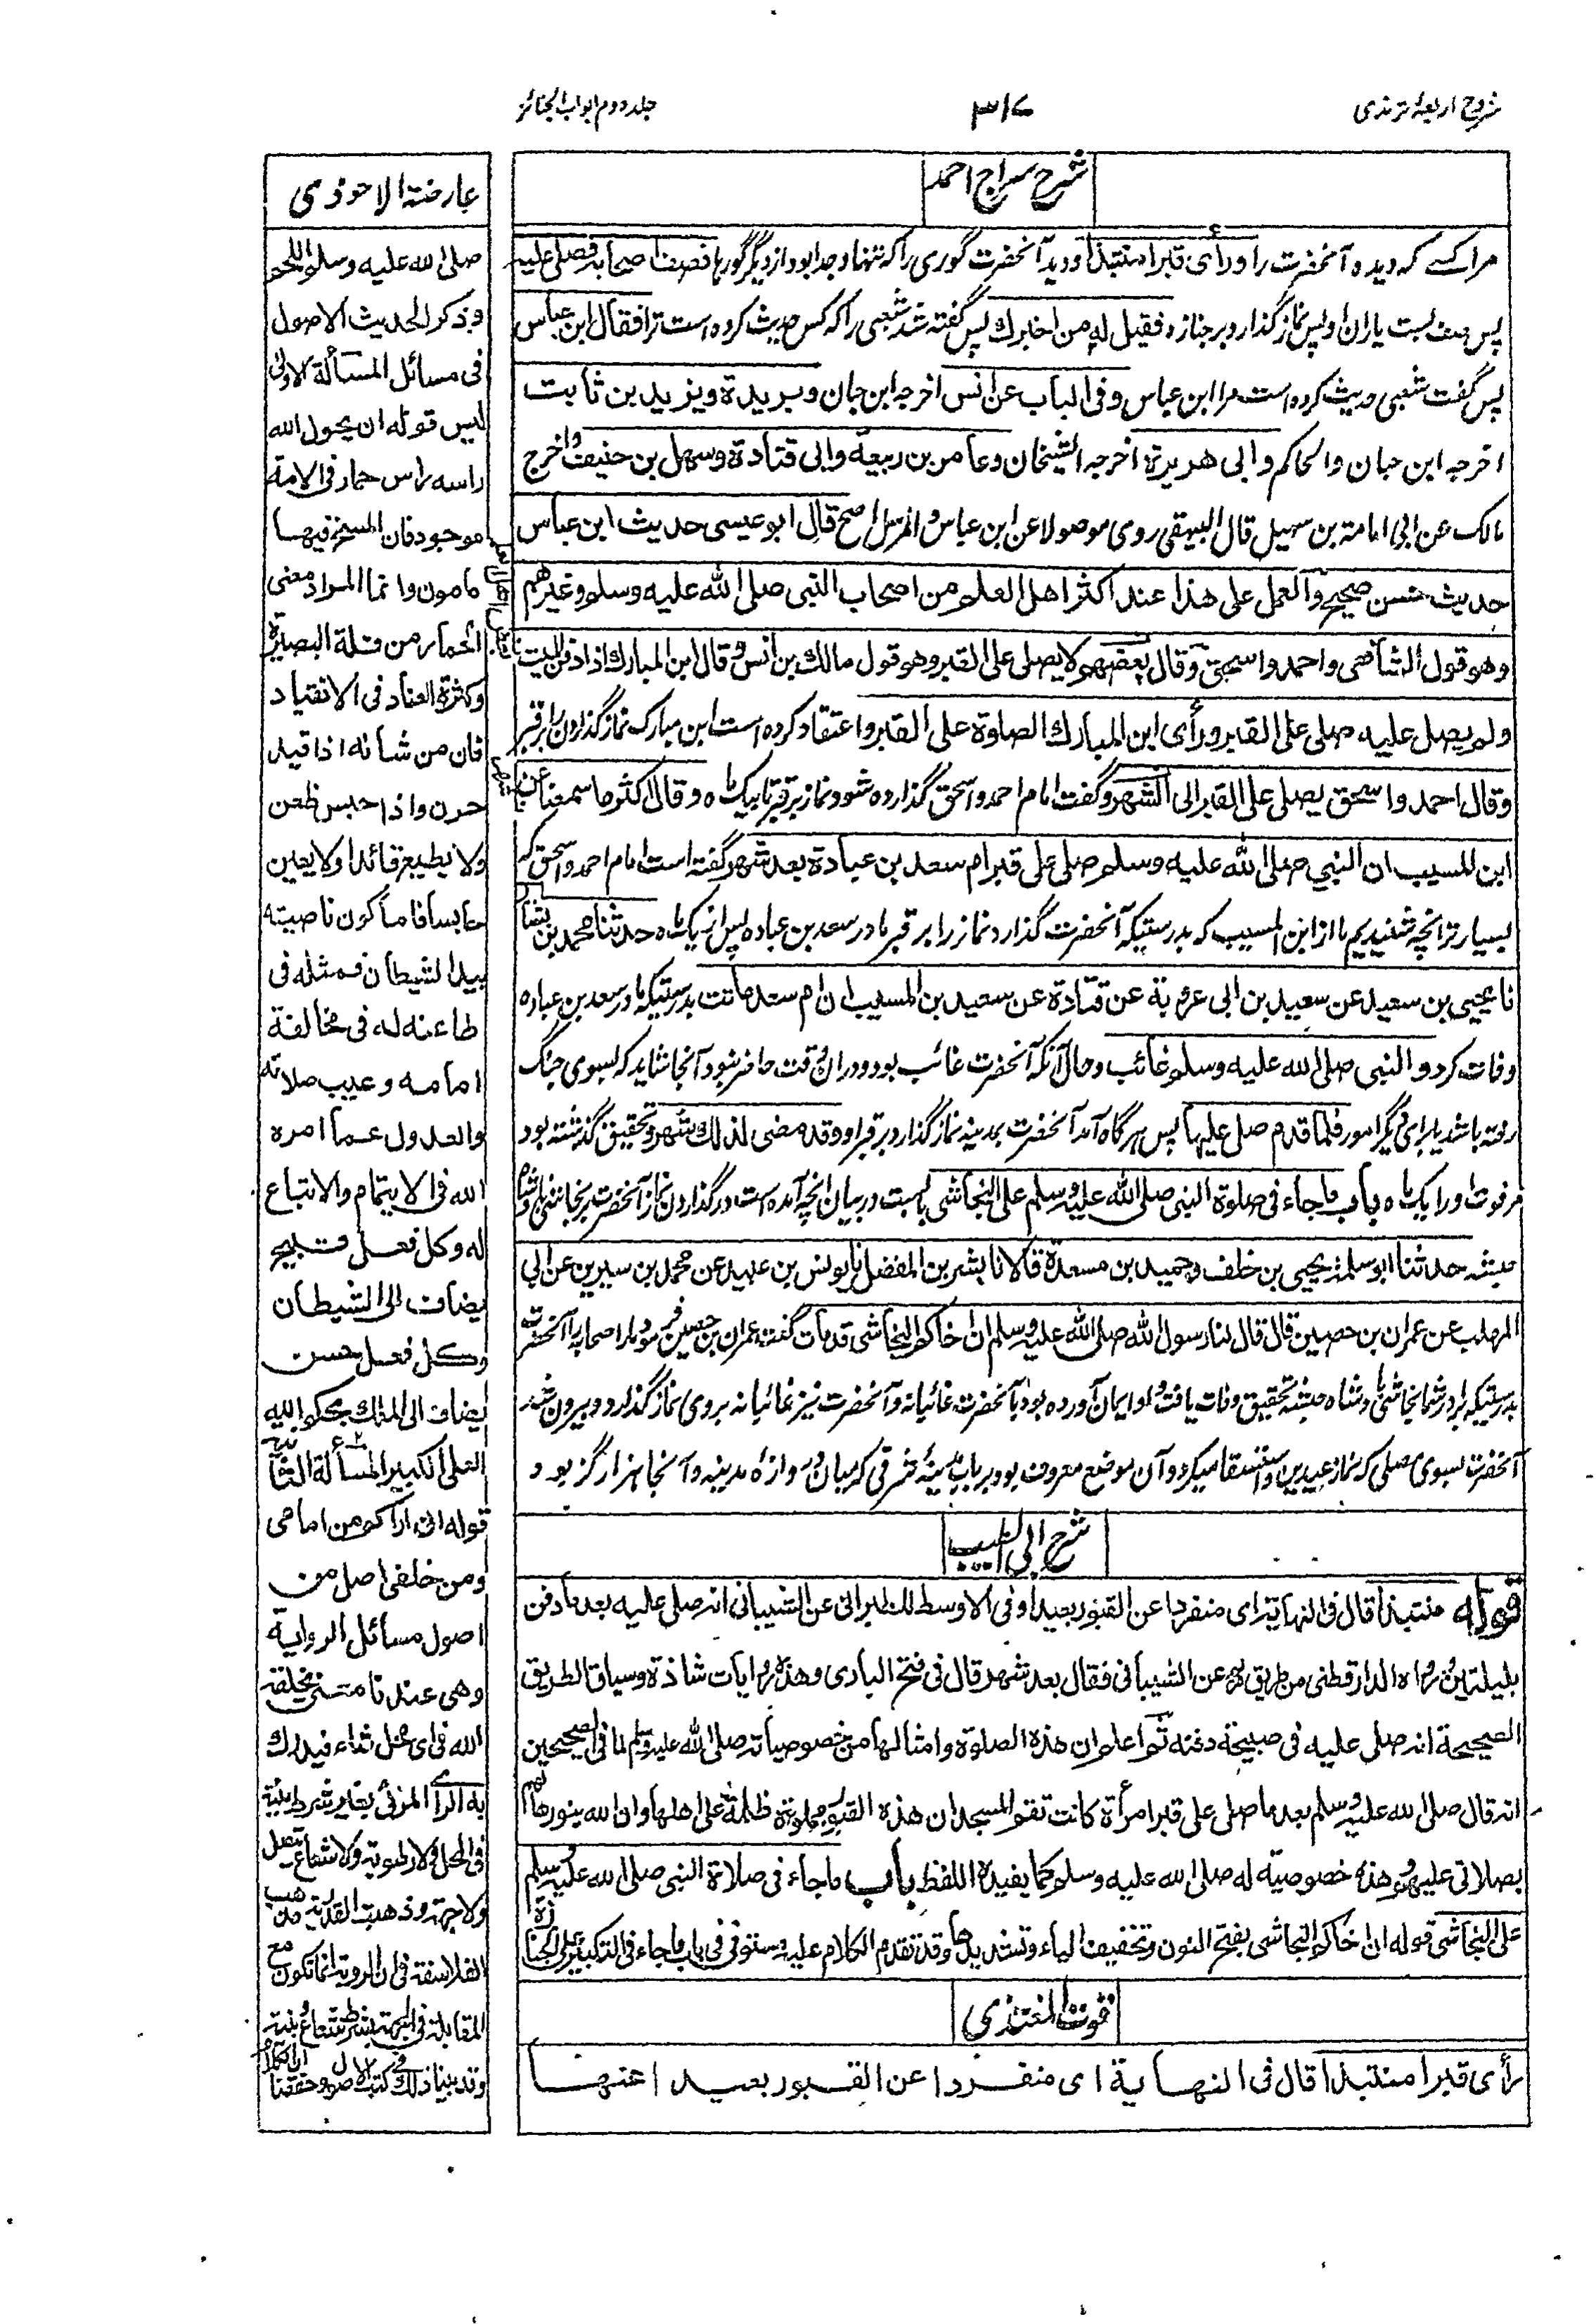 شروح اربعۂ ترمذی
۳۱۷
جلد دوم ابواب الجنائز
شرح سراج احمد
مرا کسے کہ دیدہ آنحضرت را ورأی قبرا منتبذا ودید آنحضرت گوری را کہ تنہا وجدا بود از دیگر گورہا فصف اصحابہ فصلی علیہ
پس صف بست یاران او پس نماز گذارد بر جنازہ فقیل لہ من اخبرك پس گفتہ شد شعبی را کہ کس حدیث کردہ است ترا فقال ابن عباس
پس گفت شعبی حدیث کردہ است مرا ابن عباس وفی الباب عن انس اخرجہ ابن حبان وبریدة ویزید بن ثابت
اخرجہ ابن حبان والحاکم وابی هریرة اخرجہ الشیخان وعامر بن ربیعة وابی قتادة وسهل بن حنیف واخرج
مالک عن ابی امامة بن سهیل قال البیهقی روی موصولا عن ابن عباس والمرسل اصح قال ابو عیسی حدیث ابن عباس
حدیث حسن صحیح والعمل علی هذا عند اکثر اهل العلم من اصحاب النبی صلی الله علیه وسلم وغیرهم
وهو قول الشافعی واحمد واسحق وقال بعضهم لا یصلی علی القبر وهو قول مالك بن انس وقال ابن المبارك اذا دفن المیت
ولم یصل علیه صلی علی القبر ورأی ابن المبارك الصلوة علی القبر واعتقاد کردہ است ابن مبارک نماز گذاردن را بر قبر
وقال احمد واسحق یصلی علی القبر الی الشهر وگفت امام احمد واسحق گذاردہ شود نماز بر قبر تا یک ماہ وقال اکثر ما سمعنا عن
ابن المسیب ان النبی صلی الله علیه وسلم صلی علی قبر ام سعد بن عبادة بعد شهر گفتہ است امام احمد واسحق کہ
بسیار تر آنچہ شنیدیم ما از ابن المسیب کہ بدرستیکہ آنحضرت گذارد نماز را بر قبر مادر سعد بن عبادہ پس از یک ماہ حدثنا محمد بن بشار
نا یحیی بن سعید عن سعید بن ابی عروبة عن قتادة عن سعید بن المسیب ان ام سعد ماتت بدرستیکہ مادر سعد بن عبادہ
وفات کرد والنبی صلی الله علیه وسلم غائب وحال آنکہ آنحضرت غائب بود ودران وقت حاضر نبود آنجا شاید کہ بسوی جنگ
رفتہ باشد یا برای دیگر امور فلما قدم صلی علیها پس ہرگاہ آمد آنحضرت بمدینہ نماز گذارد بر قبر او وقد مضی لذلك شهر وتحقیق گذشتہ بود
مر فوت او را یک ماہ باب ما جاء فی صلوة النبی صلی الله علیه وسلم علی النجاشی بابست در بیان آنچہ آمدہ است در گذاردن نماز آنحضرت بر نجاشی پادشاہ
حبشہ حدثنا ابو سلمة یحیی بن خلف وحمید بن مسعدة قالا نا بشر بن المفضل نا یونس بن عبید عن محمد بن سیرین عن ابی
المهلب عن عمران بن حصین قال قال لنا رسول الله صلی الله علیه وسلم ان اخاکم النجاشی قد مات گفت عمران بن حصین فرمود ما را اصحابہ را آنحضرت
بدرستیکہ برادر شما نجاشی پادشاہ حبشہ تحقیق وفات یافت واو ایمان آوردہ بود بآنحضرت غائبانہ وآنحضرت نیز غائبانہ بروی نماز گذارد وبیرون شد
آنحضرت بسوی مصلی کہ نماز عیدین واستسقا میکرد وآن موضع معروف بود بر باب مدینۂ شرقی کہ میان او ودروازۂ مدینہ وآنجا ہزار گز بود
شرح ابی الطیب
قوله منتبذا قال فی النهایة ای منفردا عن القبور بعیدا وفی الاوسط للطبرانی عن الشیبانی انه صلی علیه بعد ما دفن
بلیلتین ورواه الدارقطنی من طریق هریم عن الشیبانی فقال بعد شهر قال فی فتح الباری وهذه روایات شاذة وسیاق الطریق
الصحیحة انه صلی علیه فی صبیحة دفنه ثم اعلم ان هذه الصلوة وامثالها من خصوصیاته صلی الله علیه وسلم لما فی الصحیحین
انه قال صلی الله علیه وسلم بعد ما صلی علی قبر امرأة کانت تقم المسجد ان هذه القبور مملوءة ظلمة علی اهلها وان الله ینورها لهم
بصلاتی علیهم وهذه خصوصیة له صلی الله علیه وسلم کما یفیده اللفظ باب ما جاء فی صلاة النبی صلی الله علیه وسلم
علی النجاشی قوله ان اخاکم النجاشی بفتح النون وتخفیف الیاء وتشدیدها وقد تقدم الکلام علیه وستوفی فی باب ما جاء فی التکبیر علی الجنازة
قوت المغتذی
رأی قبرا منتبذا قال فی النهایة ای منفردا عن القبور بعیدا عنها
عارضة الاحوذی
صلی الله علیه وسلم اللحم
وذکر الحدیث الاصول
فی مسائل المسألة الاولی
لیس قوله ان یحول الله
راسه راس حمار فی الامة
موجود فان المسخ فیها
مامون وانما المراد معنی
الحمار من قلة البصیرة
وکثرة العناد فی الانقیاد
فان من شأنه اذا قید
حرن واذا حبس طعن
ولا یطیع قائدا ولا یعین
حابسا فاما کون ناصیته
بید الشیطان فمثله فی
طاعته له فی مخالفة
امامه وعیب صلاته
والعدول عما امره
الله فی الایتمام والاتباع
له وکل فعل قبیح
یضاف الی الشیطان
وکل فعل حسن
یضاف الی الملك بحکم الله
العلی الکبیر المسألة الثانیة
قوله انی اراکم من امامی
ومن خلفی اصل من
اصول مسائل الرویة
وهی عندنا معنی یخلقه
الله فی ای محل شاء فیدرك
به الرای المرئی بغیر شرط بنیة
فی المحل ولا رطوبة ولا شعاع یتصل
ولا جهة وذهبت القدریة
الفلاسفة فی ان الرویة انما تکون مع
المقابلة فی الجهة بشرط شعاع وبنیة
وقد بینا ذلك فی کتب الاصول وحققنا